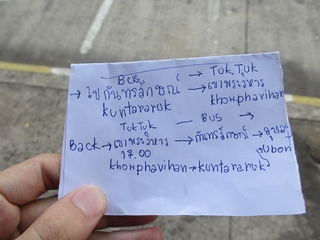 Bus → TukTuk
→ ไป กันทรลักษณ์ → เขาพระวิหาร
kuntararuk khowphavihan
TukTuk — BUS →
Back → เขาพระวิหาร → กันทรลักษณ์ → อุบล
17.00 Ubon
khowphavihan → kuntararuk